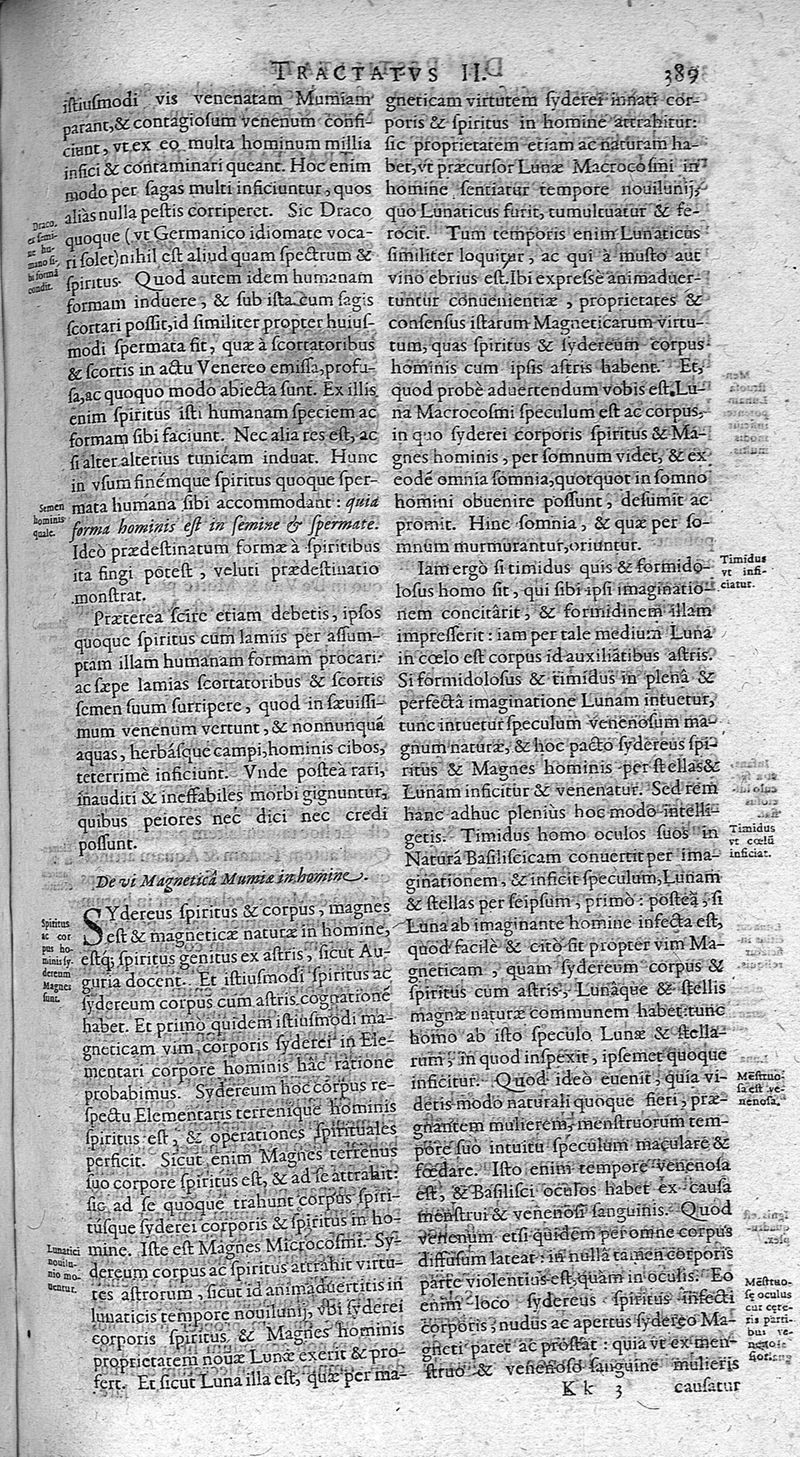 TRACTATVS II. 389
istiusmodi vis venenatam Mumiam
parant,& contagiosum venenum confi-
ciunt, vt ex eo multa hominum millia
infici & contaminari queant. Hoc enim
modo per sagas multi inficiuntur, quos
aliàs nulla pestis corriperet. Sic Draco
quoque (vt Germanico idiomate voca-
ri solet) nihil est aliud quam spectrum &
spiritus. Quod autem idem humanam
formam induere, & sub ista cum sagis
scortari possit, id similiter propter huius-
modi spermata fit, quæ à scortatoribus
& scortis in actu Venereo emissa, profu-
sa, ac quoquo modo abiecta sunt. Ex illis
enim spiritus isti humanam speciem ac
formam sibi faciunt. Nec alia res est, ac
si alter alterius tunicam induat. Hunc
in vsum finémque spiritus quoque sper-
mata humana sibi accommodant: quia
forma hominis est in semine & spermate.
Ideò prædestinatum formæ à spiritibus
ita fingi potest, veluti prædestinatio
monstrat.
Præterea scire etiam debetis, ipsos
quoque spiritus cum lamiis per assum-
ptam illam humanam formam procari:
ac sæpe lamias scortatoribus & scortis
semen suum surripere, quod in sæuissi-
mum venenum vertunt, & nonnunquã
aquas, herbásque campi, hominis cibos,
teterrimè inficiunt. Vnde posteà rari,
inauditi & ineffabiles morbi gignuntur,
quibus peiores nec dici nec credi
possunt.
De vi Magneticâ Mumiæ in homine.
SYdereus spiritus & corpus, magnes
est & magneticæ naturæ in homine,
estq; spiritus genitus ex astris, sicut Au-
guria docent. Et istiusmodi spiritus ac
sydereum corpus cum astris cognationẽ
habet. Et primò quidem istiusmodi ma-
gneticam vim, corporis syderei in Ele-
mentari corpore hominis hâc ratione
probabimus. Sydereum hoc corpus re-
spectu Elementaris terrenique hominis
spiritus est, & operationes spirituales
perficit. Sicut enim Magnes terrenus
suo corpore spiritus est, & ad se attrahit:
sic ad se quoque trahunt corpus spiri-
túsque syderei corporis & spiritus in ho-
mine. Iste est Magnes Microcosmi. Sy-
dereum corpus ac spiritus attrahit virtu-
tes astrorum, sicut id animaduertitis in
lunaticis tempore nouilunij, vbi syderei
corporis spiritus & Magnes hominis
proprietatem nouæ Lunæ exerit & pro-
fert. Et sicut Luna illa est, quæ per ma-
Draco.
Semen
hominis
quale.
Spiritus
ac cor
pus ho-
minis sy-
dereum
Magnes
sunt.
Lunatici
nouilu-
nio mo-
uentur.
gneticam virtutem syderei innati cor-
poris & spiritus in homine attrahitur:
sic proprietatem etiam ac naturam ha-
bet, vt præcursor Lunæ Macrocosmi in
homine sentiatur tempore nouilunij,
quo Lunaticus furit, tumultuatur & fe-
rocit. Tum temporis enim Lunaticus
similiter loquitur, ac qui à musto aut
vino ebrius est. Ibi expressè animaduer-
tuntur conuenientiæ, proprietates &
consensus istarum Magneticarum virtu-
tum, quas spiritus & sydereum corpus
hominis cum ipsis astris habent. Et,
quod probè aduertendum vobis est, Lu-
na Macrocosmi speculum est ac corpus,
in quo syderei corporis spiritus & Ma-
gnes hominis, per somnum videt, & ex
eodẽ omnia somnia, quotquot in somno
homini obuenire possunt, desumit ac
promit. Hinc somnia, & quæ per so-
mnum murmurantur, oriuntur.
Iam ergò si timidus quis & formido-
losus homo sit, qui sibi ipsi imaginatio-
nem concitârit, & formidinem illam
impresserit: iam per tale medium Luna
in cœlo est corpus id auxiliãtibus astris.
Si formidolosus & timidus in plenâ &
perfectâ imaginatione Lunam intuetur,
tunc intuetur speculum venenosum ma-
gnum naturæ, & hoc pacto sydereus spi-
ritus & Magnes hominis per stellas &
Lunam inficitur & venenatur. Sed rem
hanc adhuc pleniùs hoc modo intelli-
getis. Timidus homo oculos suos in
Naturâ Basiliscicam conuertit per ima-
ginationem, & inficit speculum, Lunam
& stellas per seipsum, primò: posteà, si
Luna ab imaginante homine infecta est,
quod facilè & citò fit propter vim Ma-
gneticam, quam sydereum corpus &
spiritus cum astris, Lunâque & stellis
magnæ naturæ communem habet: tunc
homo ab isto speculo Lunæ & stella-
rum, in quod inspexit, ipsemet quoque
inficitur. Quod ideò euenit, quia vi-
detis modo naturali quoque fieri, præ-
gnantem mulierem, menstruorum tem-
pore suo intuitu speculum maculare &
fœdare. Isto enim tempore venenosa
est, & Basilisci oculos habet ex causa
menstrui & venenosi sanguinis. Quod
venenum etsi quidem per omne corpus
diffusum lateat: in nullâ tamen corporis
parte violentius est, quàm in oculis. Eo
enim loco sydereus spiritus infecti
corporis, nudus ac apertus sydereo Ma-
gneti patet ac prostat: quia vt ex men-
struo & venenoso sanguine mulieris
Timidus
vt infi-
ciatur.
Timidus
vt cœlũ
inficiat.
Mẽstruo-
sa est ve-
nenosa.
Mẽstruo-
sę oculus
cur cęte-
ris parti-
bus ve-
K k 3 causatur